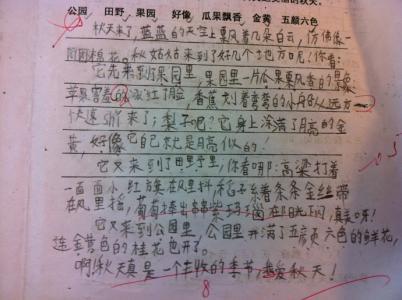 公园 田野 果园 好像 瓜果飘香 金黄 五颜六色
秋天来了，蓝蓝的天空上飘着几朵白云，仿佛像
棉花。秋姑姑来到了好几个地方呢！你看：
它先来到了果园里，果园里一片瓜果飘香的景象，
苹果害羞的涨红了脸，香蕉划着弯弯的小船从远方
快速 来了；梨子呢？它身上涂满了月亮的金
黄，好像它自己就是月亮似的！
它又来到了田野里，你看哪：高粱打着
一面面小红旗在风里抖，稻子系着条条金丝带
在风里摇，葡萄捧出串串紫玛瑙在阳光下闪，真美呀！
它又来到公园里，公园里开满了五颜六色的鲜花，
连金黄色的桂花也开了。
啊！秋天真是一个丰收的季节，我爱秋天！
8